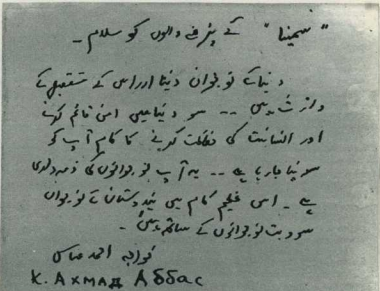 "سمینا" کے پڑھنے والوں کو سلام -
دنیا کے نوجوان دنیا اور اس کے مستقبل کے
وارث ہیں -- سو دنیا میں امن قائم کرنے
اور انسانیت کی حفاظت کرنے کا کام آپ کو
سونپا جا رہا ہے -- یہ آپ نوجوانوں کی ذمہ داری
ہے - اس عظیم کام میں ہندوستان کے نوجوان
سوویت نوجوانوں کے ساتھ ہیں -
خواجہ احمد عباس
К. Ахмад Аббас